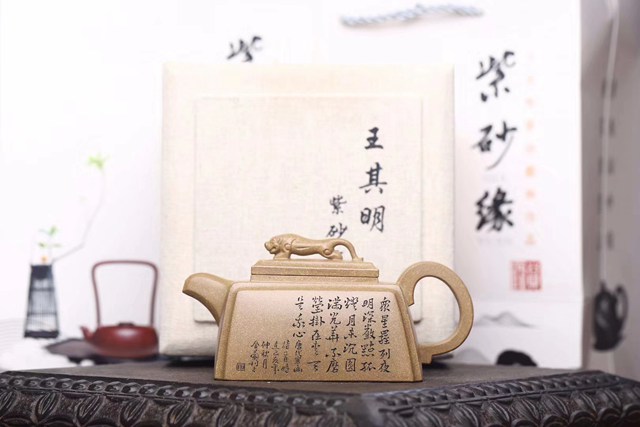 紫砂缘
王其明
紫砂
紫
眾星羅列夜
明深巖點孤
燈月未沉圓
滿光華不磨
瑩掛在青天
是我心
仲秋月